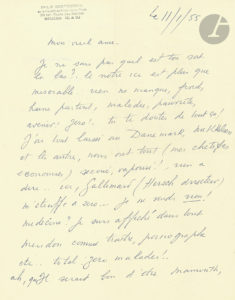 Le 11/1/55
Mon vieil ami
Je ne sais pas quel est ton sort
là bas?. le notre ici est plus que
misérable rien ne mange, froid,
haine partout, malades, pauvreté,
avenir: zéro!. tu te doutes de tout ça!
J'ai tout laissé au Danemark,
et le reste, nous ont tout (mes chétifs
économies) secoué, vaporisé!. rien a
dire.. ici, Gallimard (Hirsch directeur)
m'étouffe a zéro.. Je ne vends rien!
médecine? Je suis affiché dans tout
meudon comme traître, pornographe
etc.. total zéro malades!.
ah, qu'il serait bon d'être mammouth,